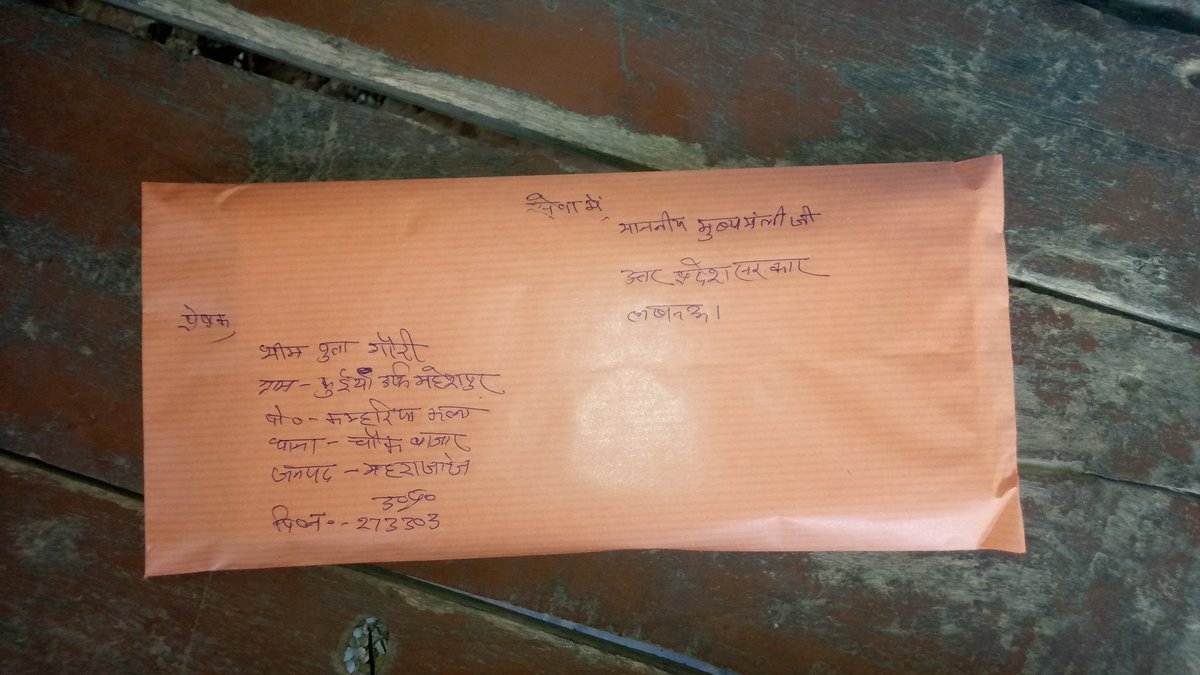 सेवा में,
माननीय मुख्यमंत्री जी
उत्तर प्रदेश सरकार
लखनऊ।
प्रेषक,
भीम गौरी
ग्राम - भुईयाँ उर्फ महेशपुर
पो० - कम्हरिया
थाना - चौक बाजार
जनपद - महराजगंज
उ०प्र०
पिन० - २७३३०३